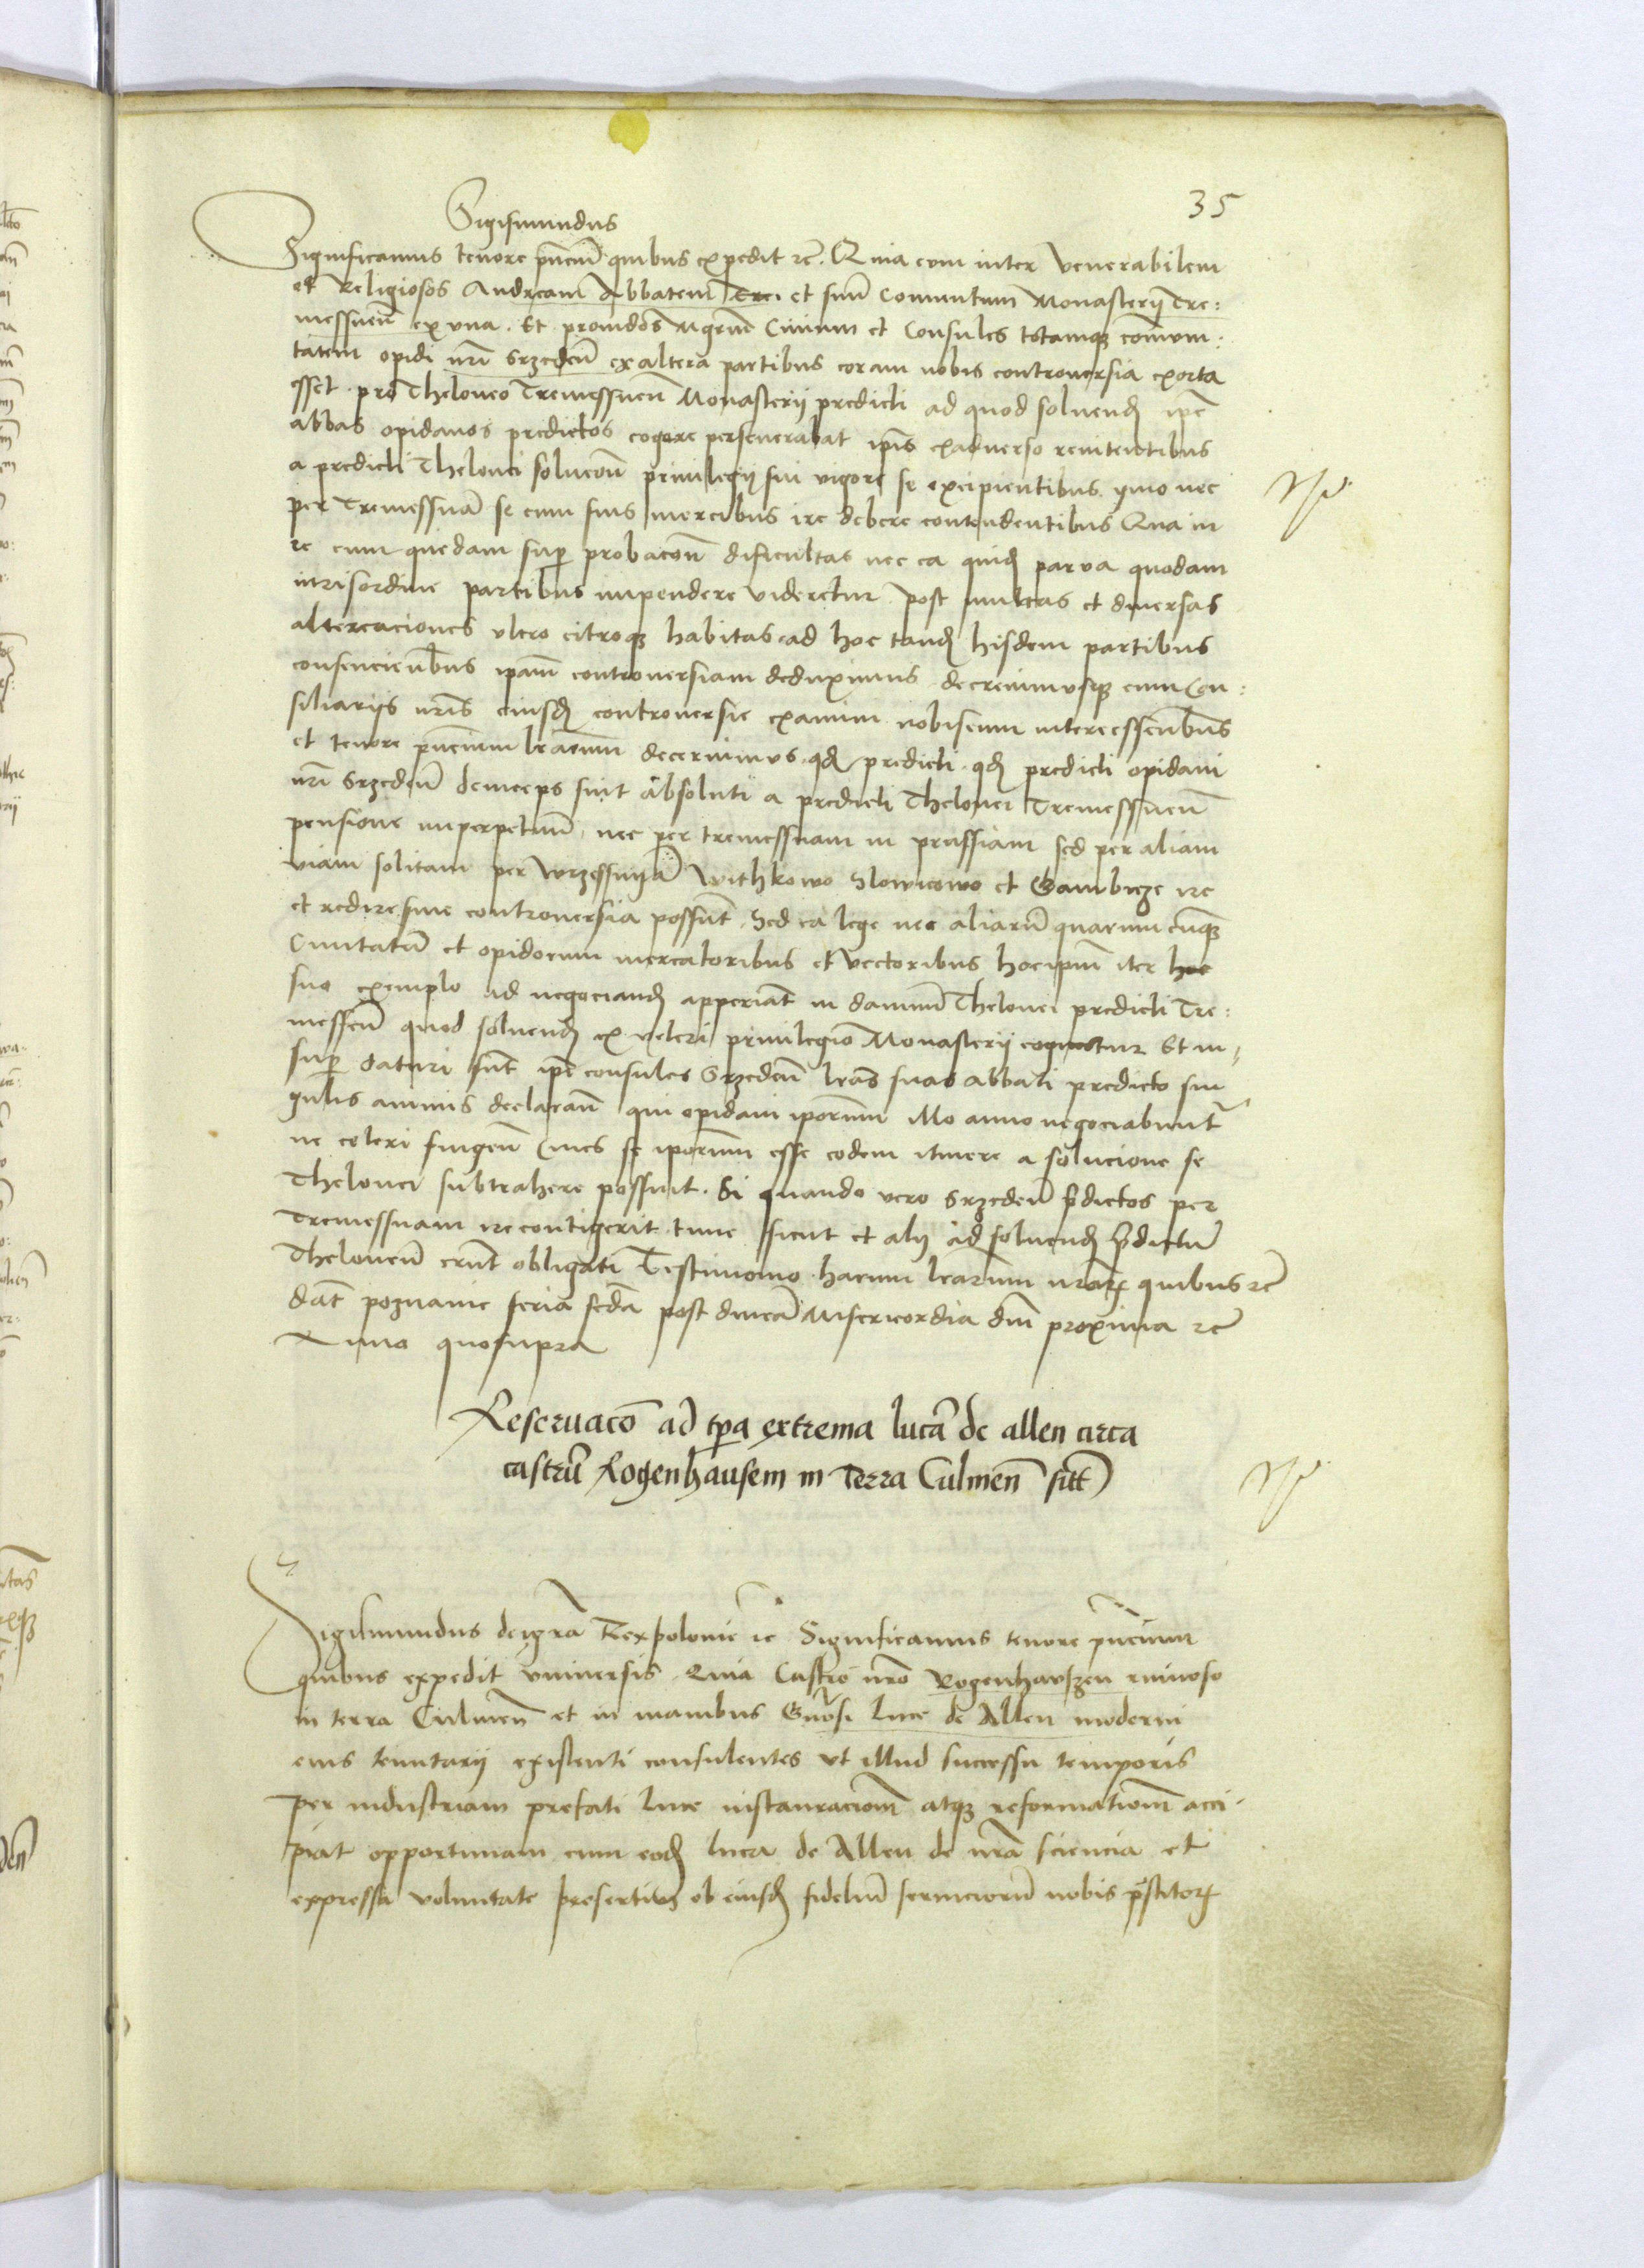 35
Sigismundus
Significamus tenore pñciũ quibus expedit rc̃. Quia cum inter Venerabilem
et Religiosos Andream Abbatem Trc. et suũ Conuentum Monasterij Tre:
messneñ ex vna. Et prouidos Mgrm̃ Ciuium et Consules totamq3 com̃um:
tatem opidi nr̃i Srzedeñ ex altera partibus coram nobis controuersia exorta
esset pro Theloneo Tremessneñ Monasterij predicti ad quod soluendũ ipẽ
abbas opidanos predictos cogere perseuerabat ip̃is exaduerso renitentibus
a predicti Thelonei solucõne priuilegij sui vigore se excipientibus ymo nec
per Tremessnã se cum suis mercibus ire debere contendentibus Qua in
re cum quedam sup̃ probacoñ dificultas nec ea quid̃ parua quodam
iurisordine partibus impendere videretur post multas et diuersas
altercaciones vltro citroq3 habitas ad hoc tand̃ hisdem partibus
consencientibus ip̃am controuersiam deduximus decreuimusq3 cum Con:
siliarijs nr̃is eiusd̃ controuersie examini nobiscum interessentibus
et tenore pñcium lr̃arum decernimus qd̃ predicti qd̃ predicti opidani
nr̃i Srzedeñ deinceps sint absoluti a predicti Thelonei Tremessneñ
pensione imperpetuũ nec per tremessnam in prussiam sed per aliam
viam solitam per Wrzessnyã Withkowo Slowicowo et Gambicze ire
et redire sine controuersia possunt Sed ea lege nec aliarũ quarumcũq3
Ciuitatũ et opidorum mercatoribus et vectoribus hoc ip̃um iter hoc
suo exemplo ad negociand̃ apperiãt in damnũ Thelonei predicti Tre:
messeñ quod soluend̃ ex veteri priuilegio Monasterij coguntur Et in
sup̃ daturi sũt ip̃i consules Srzedeñ lr̃as suas abbati predicto sin
gulis annis declarañ qui opidani ip̃orum illo anno negociabunt̃
ne ceteri fingeñ Ciues se ip̃orum esse eodem itinere a solucione se
Thelonei subtrahere possint. Si quando vero Srzedeñ p̃dictos per
Tremessnam ire contigerit tunc sicut et alij ad soluend̃ p̃dictũ
Theloneũ erũt obligati Testimonio harum lr̃arum nr̃ar quibus rc̃
dat̃ poznanie feria scd̃a post dnĩcã Misericordia dñi proxima rc̃
Anno quo supra
Reseruacõ ad tp̃a extrema lucã de allen circa
castrũ Rogenhausem in Terra Culmeñ sitt̃
Sigismundus dei gr̃a Rex polonie rc̃ Significamus tenore pñcium
quibus expedit vniuersis Quia Castro nr̃o Rogenhavszen ruinoso
in terra Culmeñ et in manibus Gñosi luce de Allen moderni
eius tenutarij existenti consulentes vt illud successu temporis
per industriam prefati luce instauracionem atq3 reformationem acci-
piat opportunam cum eod̃ luca de Allen de nr̃a sciencia et
expressa voluntate presertim ob eiusd̃ fideliũ seruiciorũ nobis p̃stitor